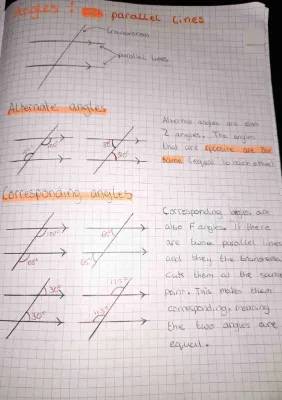 Angles : parallel lines
transversal
parallel lines
Alternate angles
Alternate angles are also
Z angles. The angles
that are opposite are the
same (equal to each other)
Corresponding angles
Corresponding angles are
also F angles. If there
are two parallel lines
and they the transversal
cuts them at the same
point. This makes them
corresponding, meaning
the two angles are
equal.
30°
30°